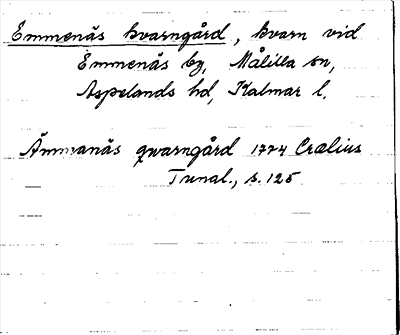 Emmenäs kvarngård, kvarn vid
Emmenäs by, Målilla sn,
Aspelands hd, Kalmar l.
Ämmanäs qwarngård 1774 Crælius
Tunal., s. 125